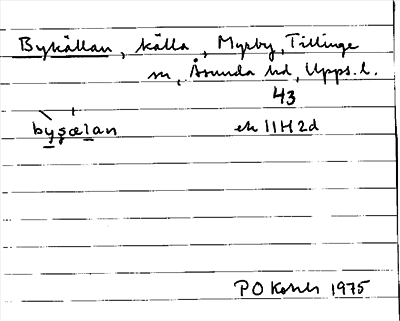 Bykällan, källa, Myrby, Tillinge
sn, Åsunda hd, Upps. l.
43
byşœlan
ek 11H2d
P O 1975